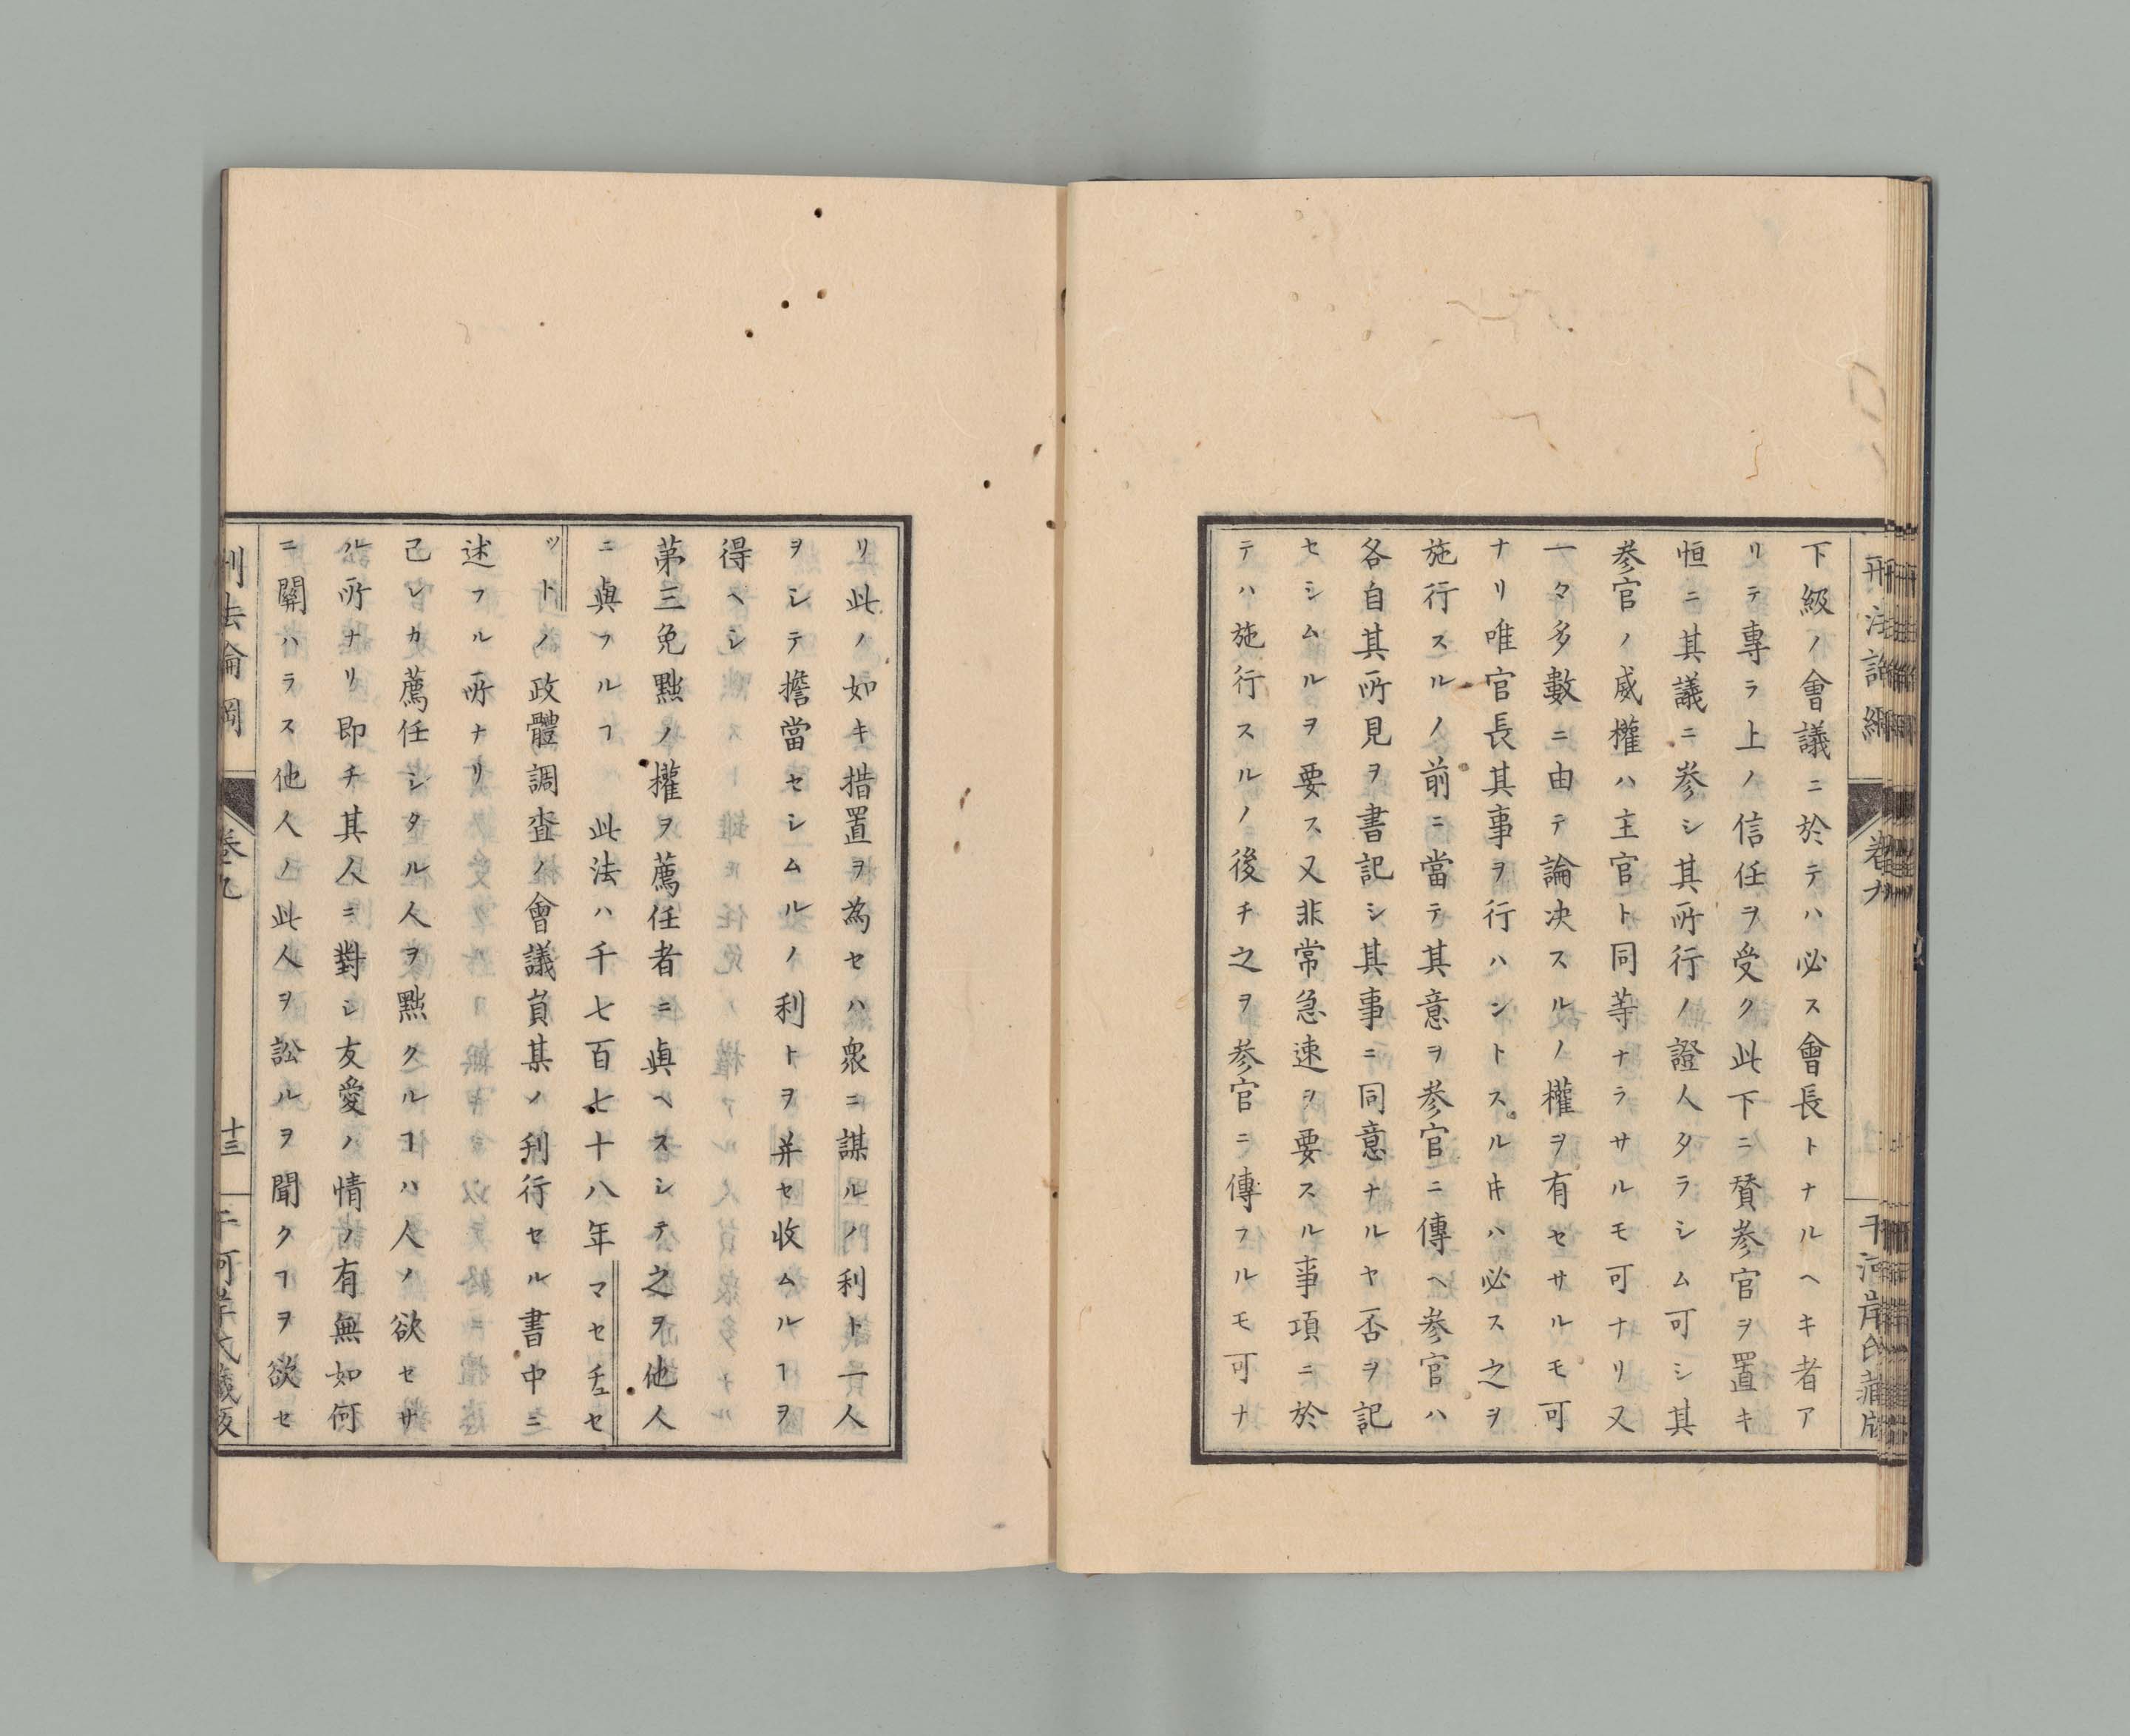 下級ノ會議ニ於テハ必ス會長トナルヘキ者ア
リテ專ラ上ノ信任ヲ受ク此下ニ賛参官ヲ置キ
恒ニ其議ニ参シ其所行ノ證人タラシム可シ其
参官ノ威權ハ主官ト同等ナラサルモ可ナリ又
一々多數ニ由テ論决スルノ權ヲ有セサルモ可
ナリ唯官長其事ヲ行ハントスルキハ必ス之ヲ
施行スルノ前ニ當テ其意ヲ参官ニ傳ヘ参官ハ
各自其所見ヲ書記シ其事ニ同意ナルヤ否ヲ記
セシムルヲ要ス又非常急速ヲ要スル事項ニ於
テハ施行スルノ後チ之ヲ参官ニ傳フルモ可ナ
リ此ノ如キ措置ヲ為セハ衆ニ謀ルノ利ト一人
ヲシテ擔當セシムルノ利トヲ并セ收ムルヿヲ
得ヘシ
第三免黜ノ權ヲ薦任者ニ與ヘスシテ之ヲ他人
ニ與フルヿ 此法ハ千七百七十八年マセチュセ
ツトノ政體調査ノ會議員某ノ刊行セル書中ニ
述フル所ナリ
己レカ薦任シタル人ヲ黜クルヿハ人ノ欲セサ
ル所ナリ即チ其人ニ對シ友愛ノ情ノ有無如何
ニ關ハラス他人ノ此人ヲ訟ルヲ聞クヿヲ欲セ
刑法論綱
卷九
十三